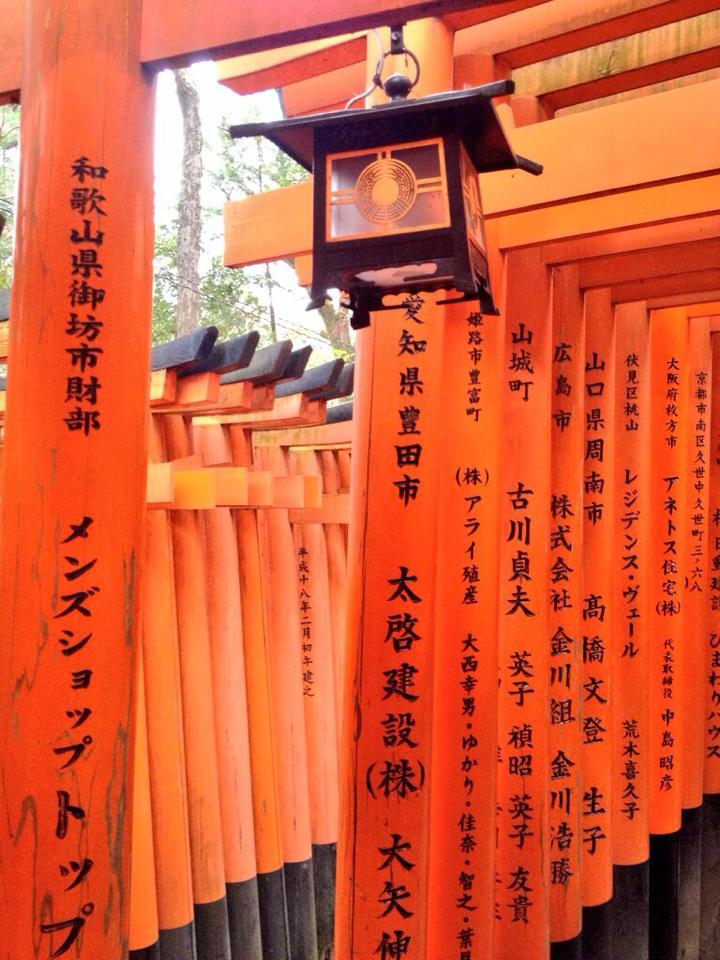 和歌山県御坊市財部 メンズショップ トップ
平成十八年二月初午建之
愛知県豊田市 太啓建設(株) 大矢伸
姫路市豊富町 (株)アライ殖産 大西幸男・ゆかり・佳奈・智之・葉月
山城町 古川貞夫 英子 禎昭 英子 友貴
広島市 株式会社 金川組 金川浩勝
山口県周南市 髙橋文登 生子
伏見区桃山 レジデンス・ヴェール 荒木喜久子
大阪府枚方市 アネトス住宅(株) 代表取締役 中島昭彦
京都市南区久世中久世町三ノ六八
ひまわりハウス